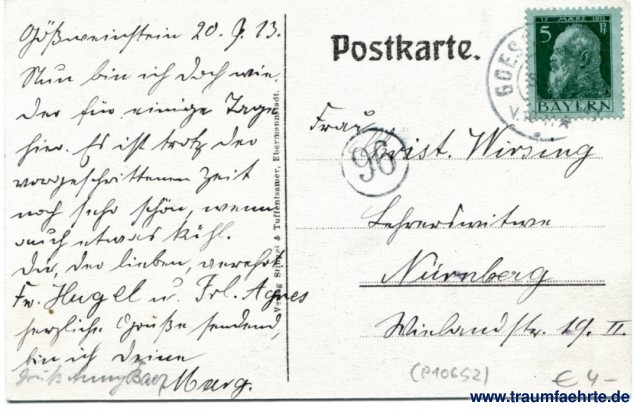 Gößweinstein 20. 9. 13.
Nun bin ich doch wie-
der für einige Tage
hier. Es ist trotz der
vorgeschrittenen Zeit
noch sehr schön, wenn
auch etwas kühl.
Dir, der lieben, verehrt.
Fr. Hugel u. Frl. Agnes
herzliche Grüße sendend,
bin ich Deine
Marg.
Gruß Anny
Verlag & Tuffentsamer, Ebermannstadt.
Postkarte.
5
BAYERN
GOES
96
Frau
Christ. Wirsing
Lehrerswitwe
Nürnberg
Wielandstr. 19. II.
(P10652)
€ 4-
www.traumfaehrte.de